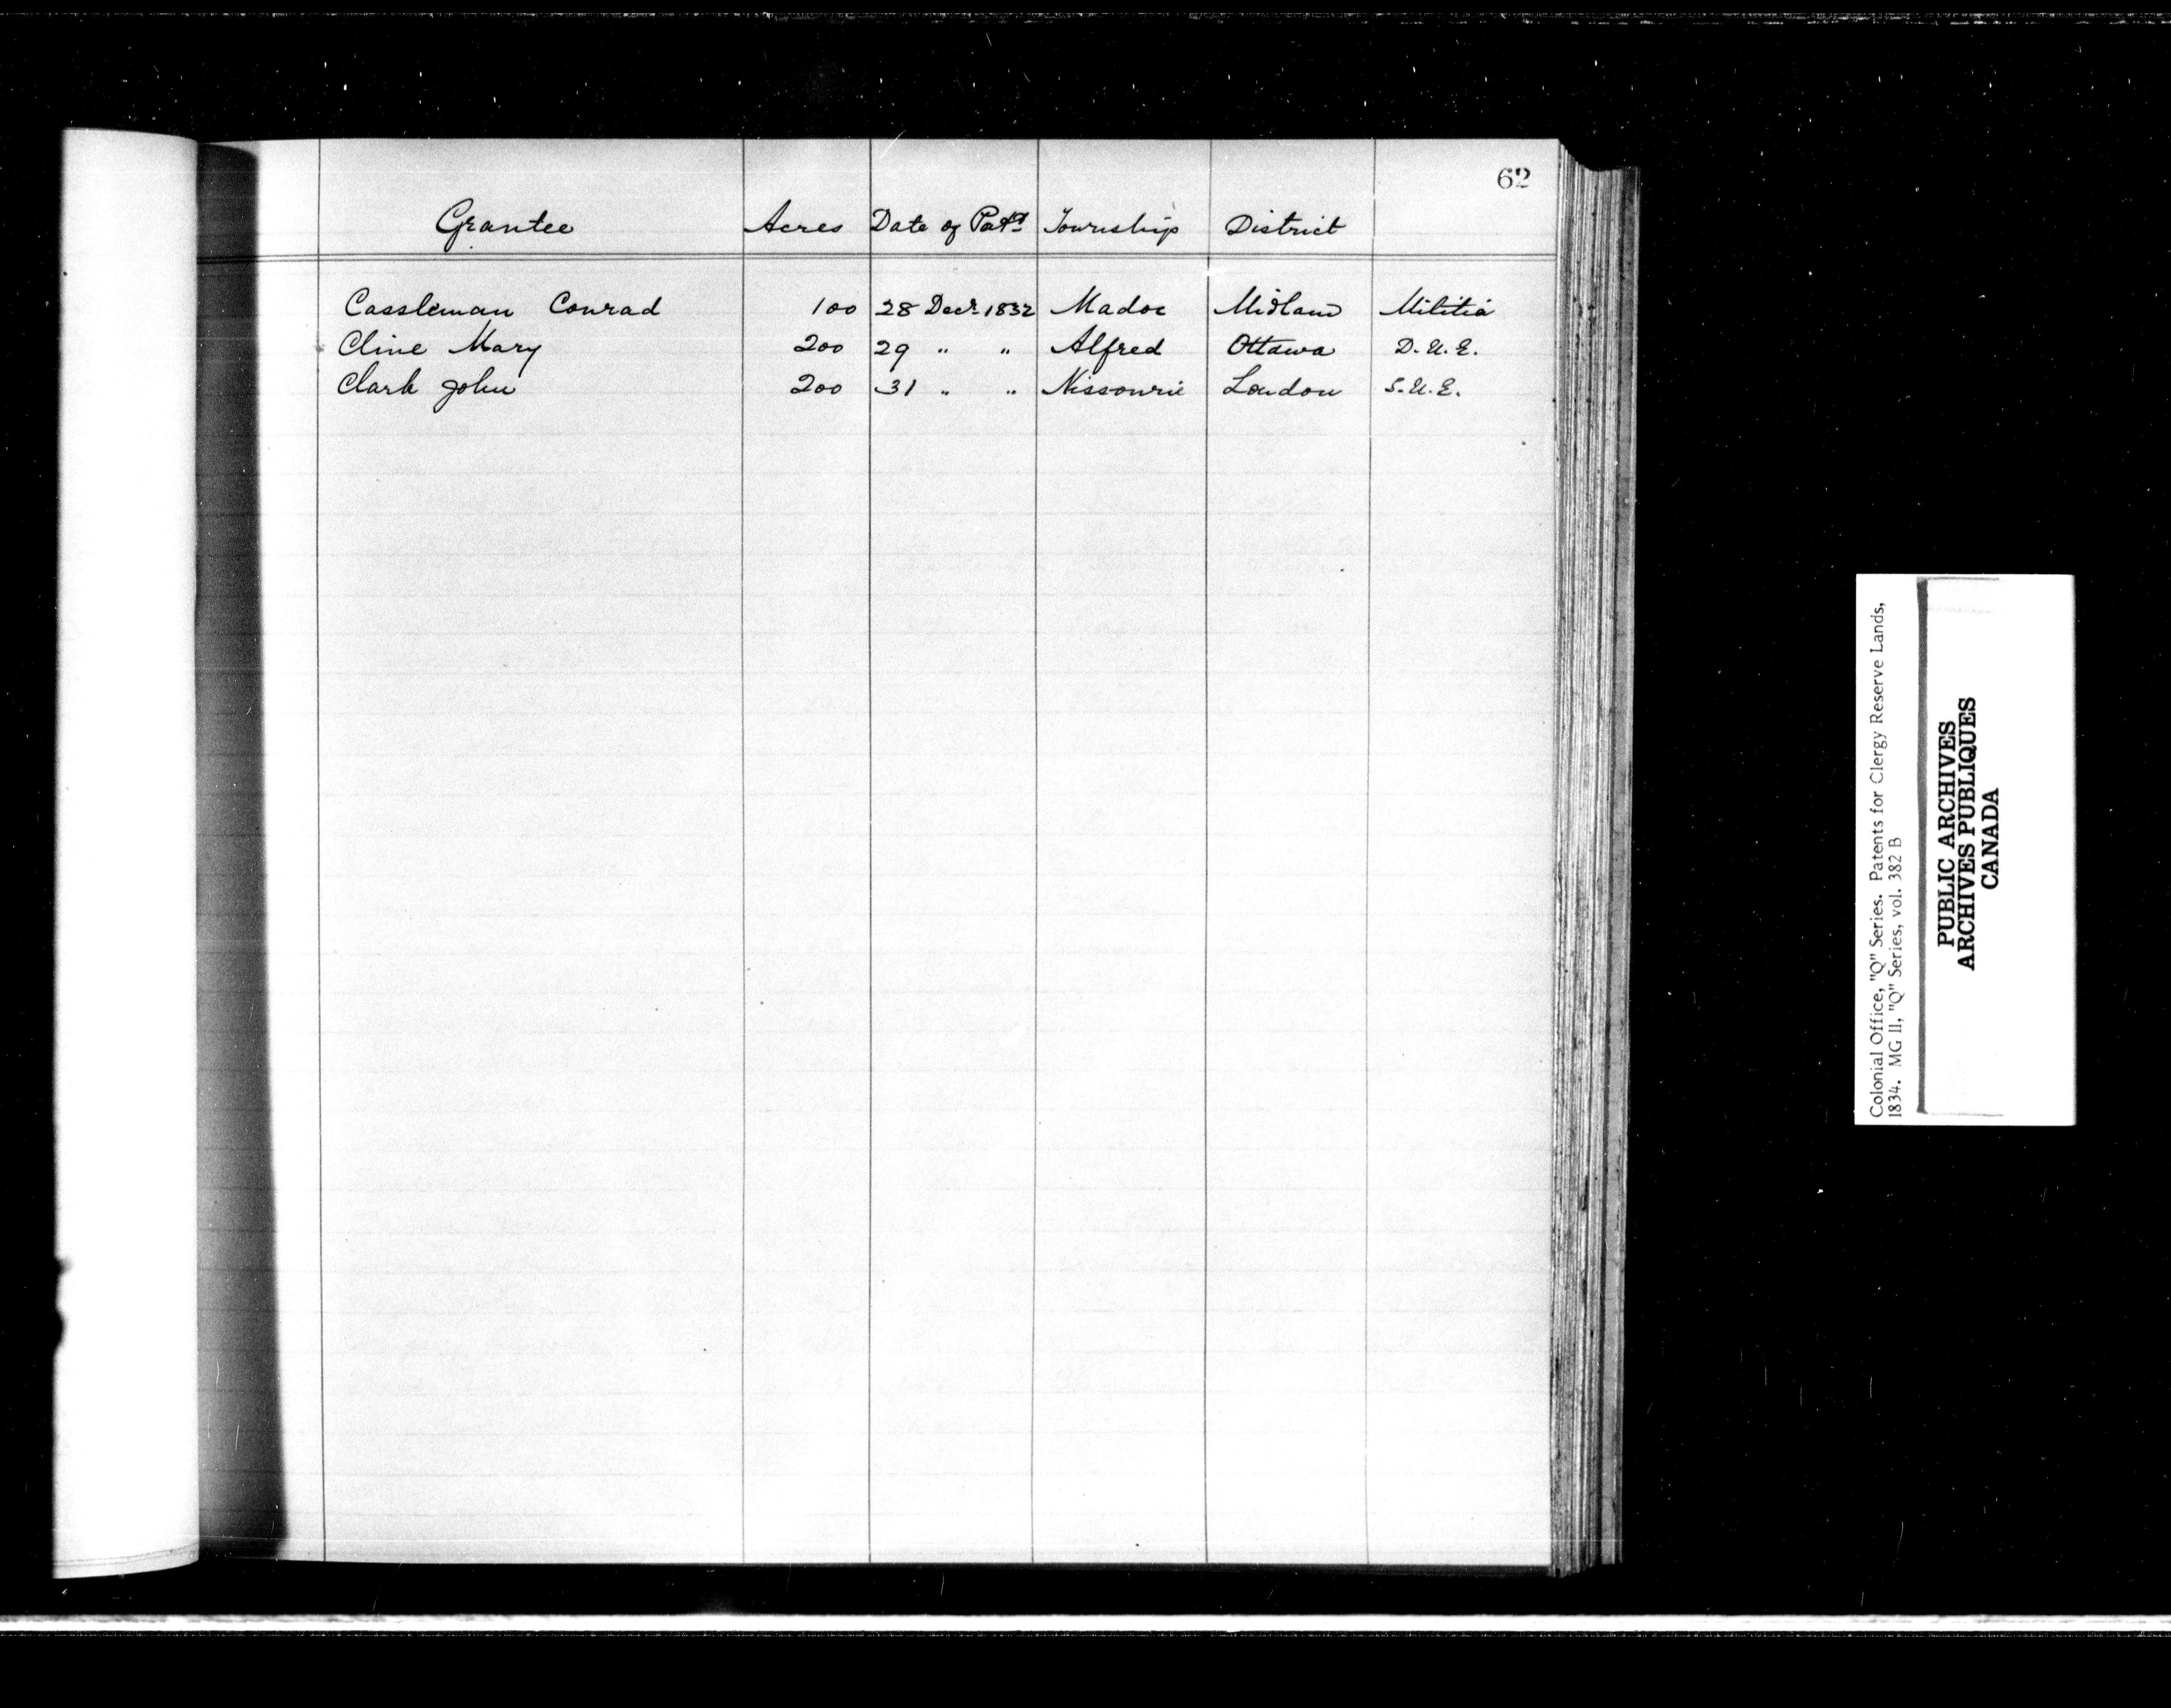 62
Grantee Acres Date of Patt Township District
Cassleman Conrad 100 28 Decr 1832 Madoc Midland Militia
Cline Mary 200 29 " " Alfred Ottawa D.U.E.
Clark John 200 31 " " Nissourie London S.U.E.
Colonial Office, "Q" Series. Patents for Clergy Reserve Lands,
1834. MG 11, "Q" Series, vol. 382 B
PUBLIC ARCHIVES
ARCHIVES PUBLIQUES
CANADA